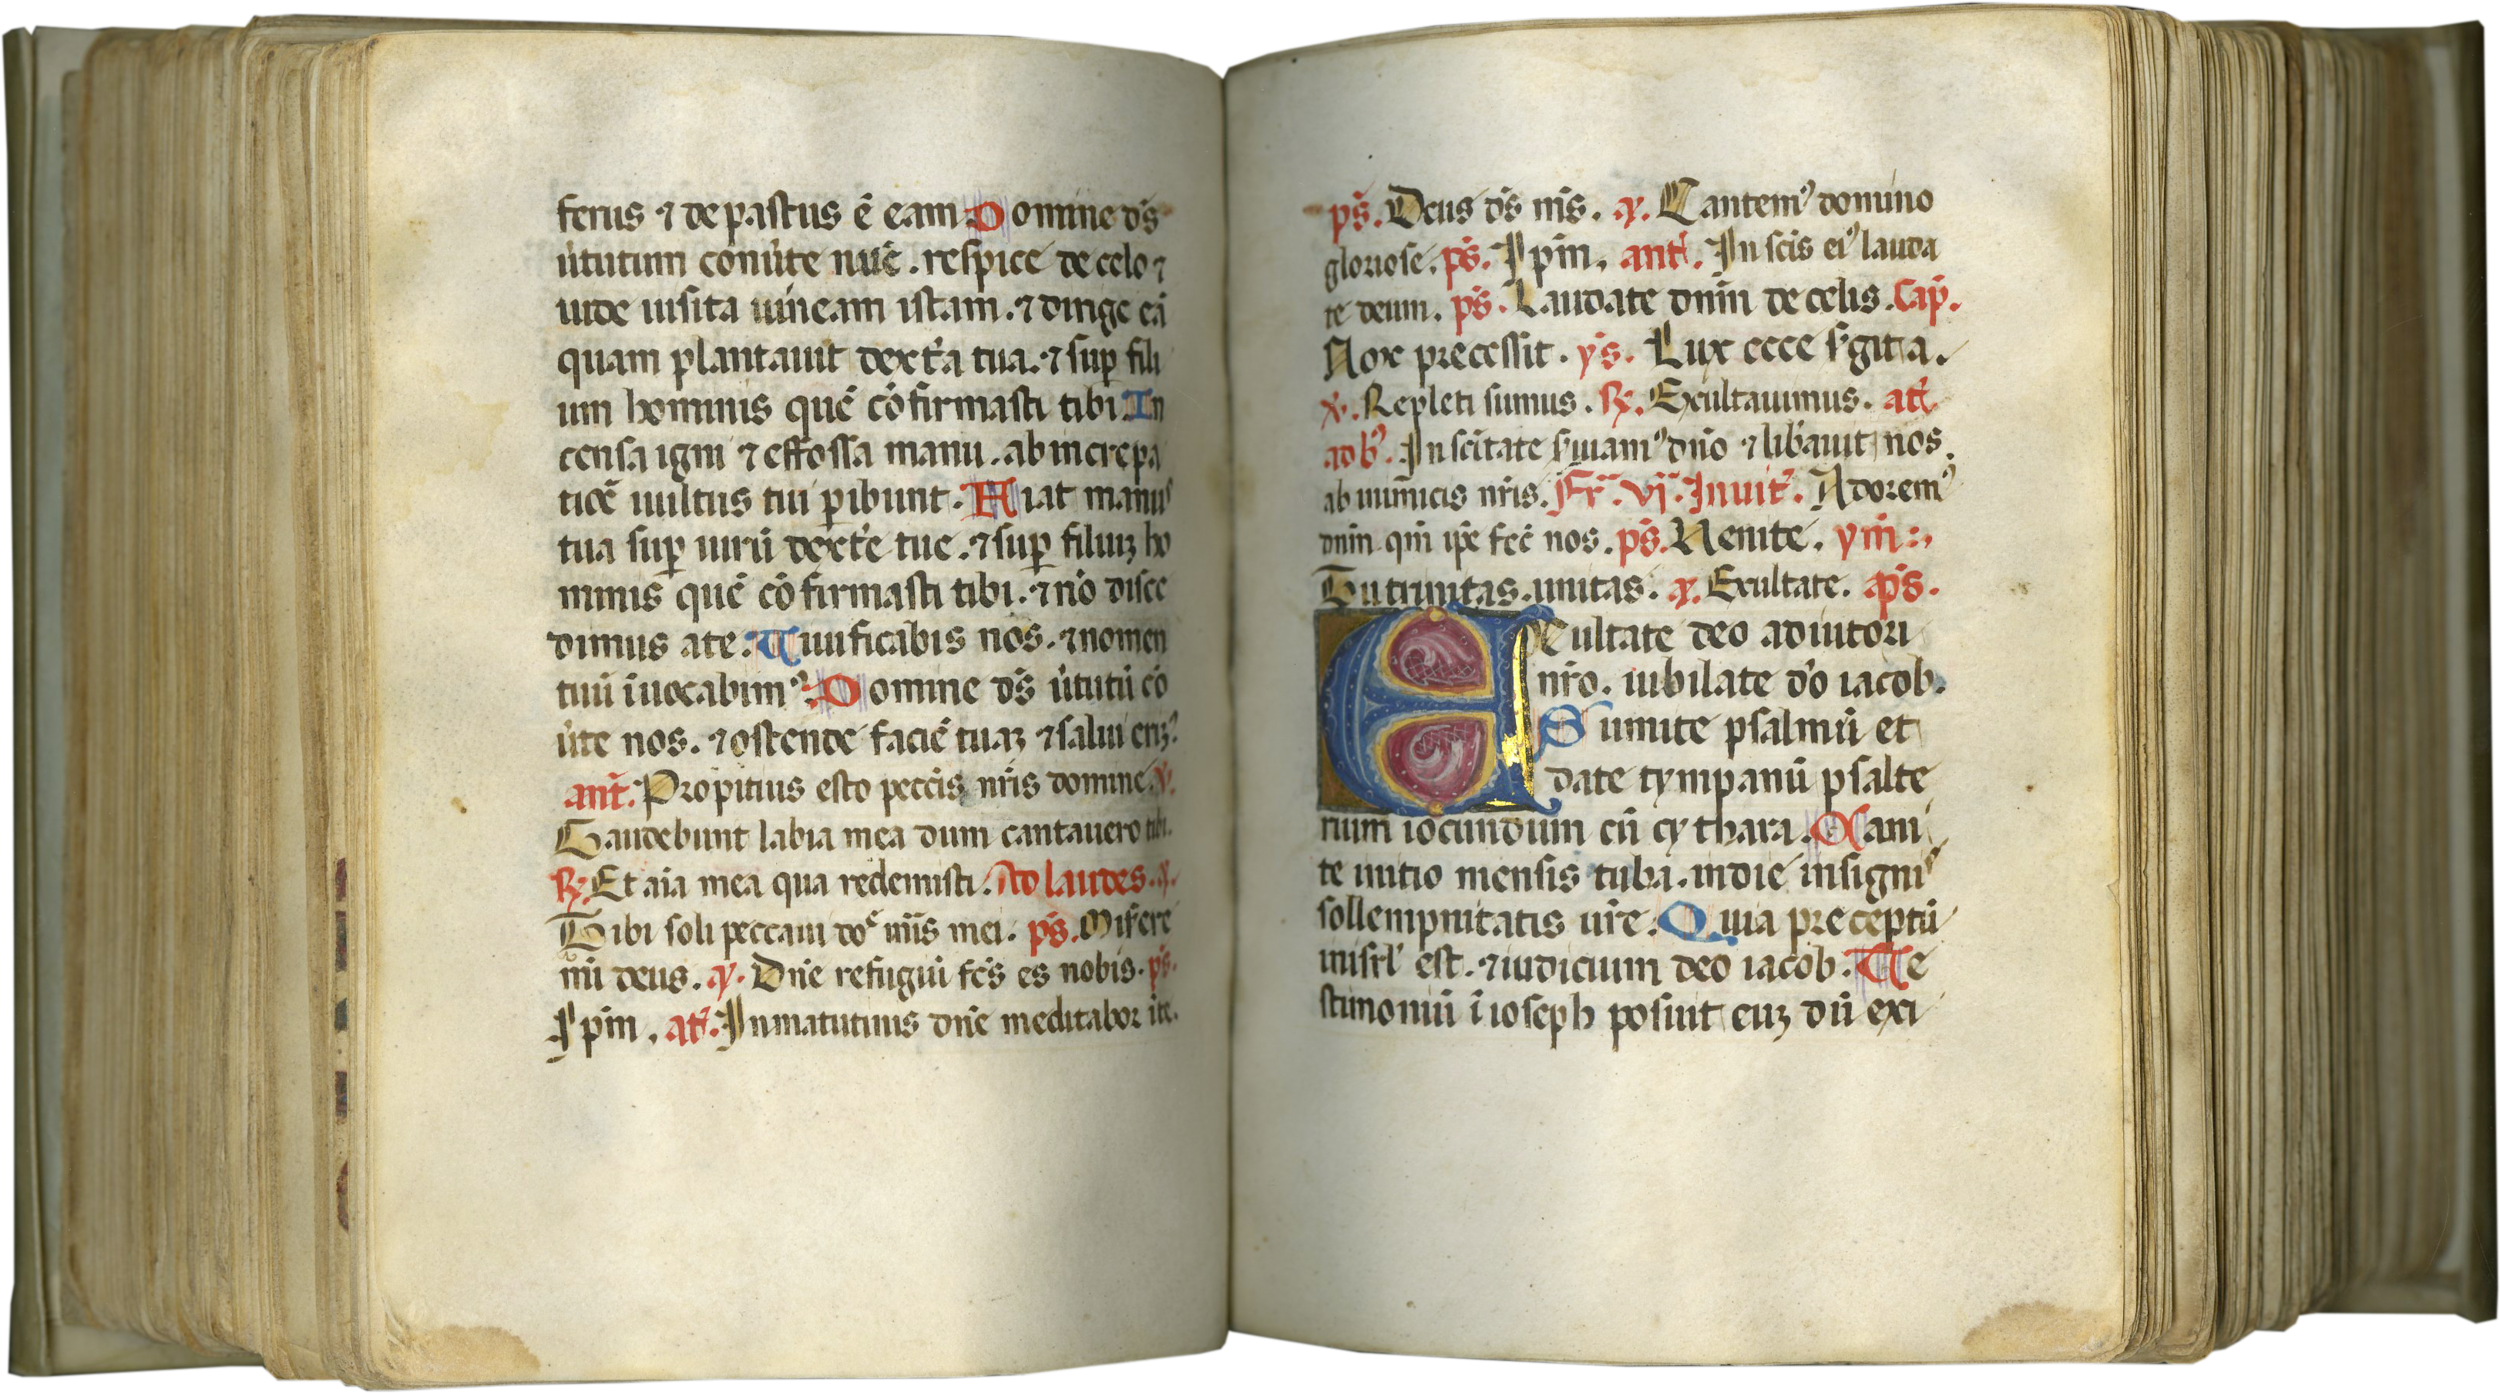 ferus ⁊ depastus ē eam Domine ds̄
u̇tutum conu̇te nuc̄. respice de celo ⁊
uide uisita uineam istam. ⁊ dirige eā
quam plantauit dext̄a tua. ⁊ suꝑ fili
um hominis quē cō firmasti tibi In
censa igni ⁊ effossa manu. ab increpa
tiōe uultus tui ꝑibunt. Fiat manus
tua suꝑ uirū dext̄e tue. ⁊ suꝑ filiuꝫ ho
minis quē cō firmasti tibi. ⁊ nō disce
dimus a te. Viuificabis nos. ⁊ nomen
tuū īuocabimꝰ. Domine ds̄ u̇tutū cō
u̇te nos. ⁊ ostende faciē tuaꝫ ⁊ salui eriꝫ
ant̄. Propitius esto pecc̄is nr̄is domine. ℣.
Gaudebunt labia mea dum cantauero tibi.
℟. Et aīa mea qua redemisti. Ad laudes. a.
Tibi soli peccaui do mīs mei. ps̄. Misere
mī deus. a. Dn̄e refugiū fc̄s es nobis. ps̄.
Ipm̄. at̄. In matutinis dn̄e meditabor ī te.
ps̄. Deus ds̄ ms̄. a. Cantemꝰ domino
gloriose. ps̄. Ipm̄. ant̄. In sc̄is eiꝰ lauda
te deum. ps̄. Laudate dnm̄ de celis. Cap̄.
Nox precessit. ys̄. Lux ecce s̄git ia.
℣. Repleti sumus. ℟. Exultauimus. at̄
ad b̄. In sc̄itate s̄uiamꝰ dn̄o ⁊ lib̄auit nos
ab inimicis nr̄is. Fr̄. vj. Inuit̄. Adoremꝰ
dnm̄ qm̄ ip̄e fec̄ nos. ps̄. Venite. ym̄
Tu trinitas unitas. a. Exultate. ps̄.
Exultate deo adiutori
nr̄o. iubilate dō iacob.
Sumite psalmū et
date tympanū psalte
rium iocundum cū cythara. Cani
te initio mensis tuba. in die insignis
sollempnitatis ur̄e. Quia preceptū
in isrl̄ est. ⁊ iudicium deo iacob. Te
stimoniū ī ioseph posuit euꝫ dū exi